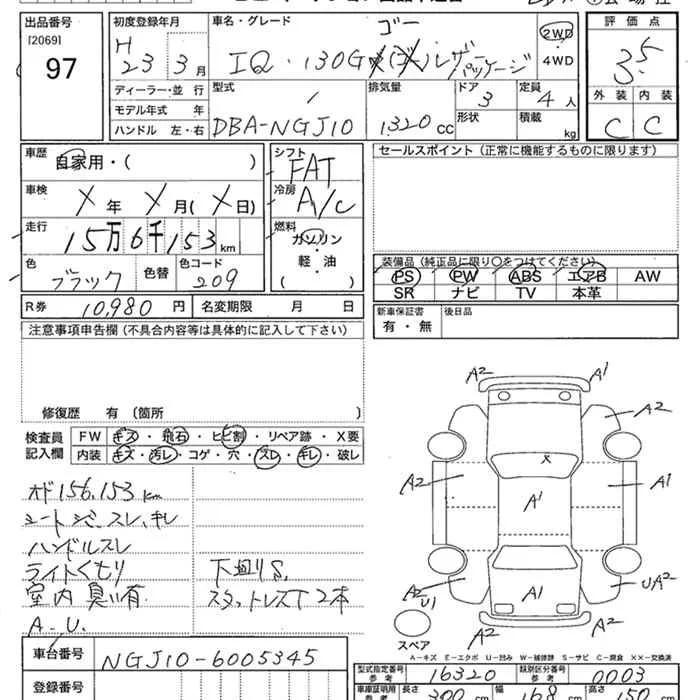 出品番号 初度登録年月 車名・グレード 評価点
[2069] H 23 3月 ゴー
97 IQ・130G レザーパッケージ 2WD・4WD 3.5
ディーラー・並行 型式 排気量 ドア 定員 外装 内装
モデル年式 年 DBA-NGJ10 1320cc 3 4人 C C
ハンドル 左・右 形状 積載 kg
車歴 自家用・( ) シフト FAT セールスポイント(正常に機能するものに限ります)
車検 X年 X月(X日) 冷房 A/C
走行 15万6千153km 燃料 ガソリン
軽・油
( )
色 ブラック 色替 色コード 209
装備品(純正品に限り○をつけてください)
PS PW ABS エアB AW
SR ナビ TV 本革
R券 10,980円 名変期限 月 日 新車保証書 有・無 後日品
注意事項申告欄(不具合内容等は具体的に記入して下さい)
修復歴 有(箇所 )
検査員記入欄 FW キズ・飛石・ヒビ割・リペア跡・X要
内装 キズ・汚レ・コゲ・穴・スレ・キレ・破レ
オド156,153km
シートシミ、スレ、キレ
ハンドルスレ
ライトくもり 下廻りS,
室内臭い有 スタットレスT2本
A.U.
A2 A1
A2
A2 A1 A1
A2 U1 A1 UA2
A2 A2
スペア
A-キズ E-エクボ U-凹み W-補修跡 S-サビ C-腐食 XX-交換済
車台番号 NGJ10-6005345
型式指定番号 参考 16320 類別区分番号 参考 0003
登録番号
車庫証明用 参考 長さ 300cm 幅 168cm 高さ 150cm